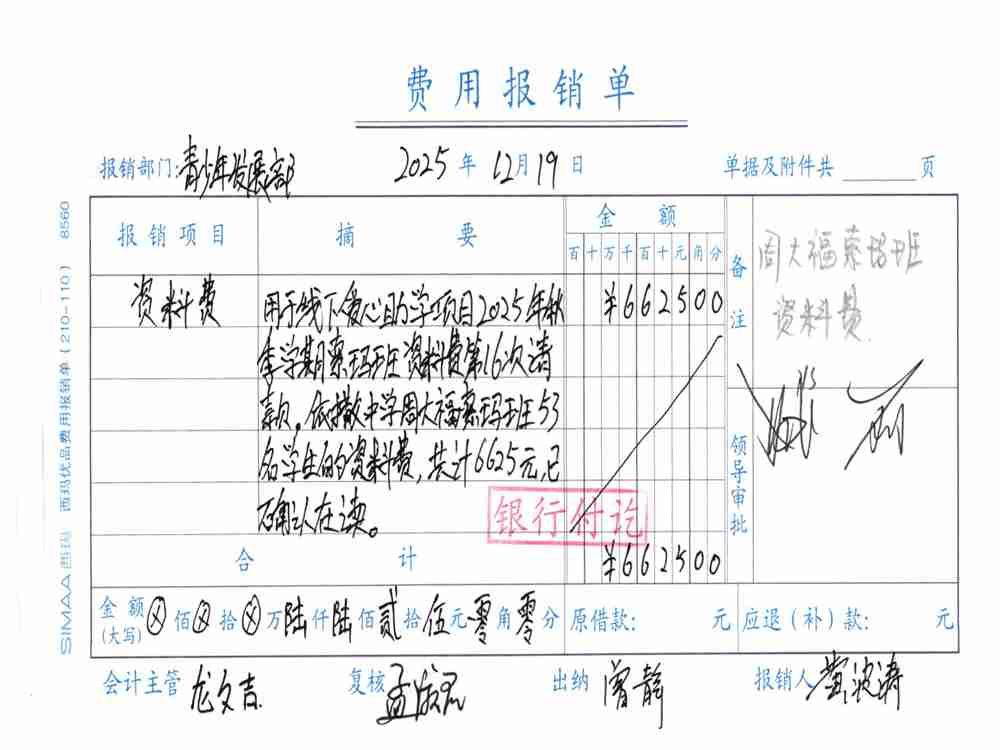 费用报销单
报销部门:青少年发展部 2025年12月19日 单据及附件共 页
报销项目 摘要 金额 备注
百十万千百十元角分
资料费 用于线下爱心助学项目2025年秋 ¥662500 周大福索玛班
季学期索玛班资料费第16次请 资料费.
款。依撒中学周大福索玛班53
名学生的资料费,共计6625元,已 领导审批
确认在读。 银行付讫
合计 ¥662500
金额(大写)ⓧ佰ⓧ拾ⓧ万陆仟陆佰贰拾伍元零角零分 原借款: 元 应退(补)款: 元
会计主管 龙文吉 复核 出纳 曾静 报销人 黄波涛
SIMAA 西玛 西玛优品费用报销单(210-110) 8560